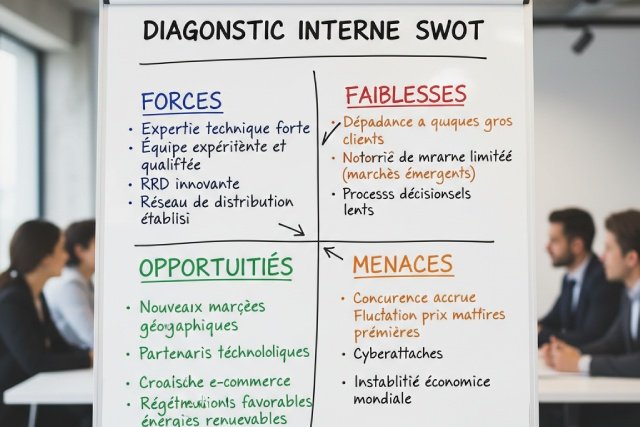 DIAGONSTIC INTERNE SWOT
FORCES
• Expertie technique forte
• Équipe expériťènte et
qualifťée
• RRD innovante
• Réseau de distribution
établisi
FAIBLESSES
• Dépadance a quques gros
clients
• Notorriē de mrarne limitéé
(marchès émergents)
• Processs décisionsels
lents
OPPORTUITIÉS
• Nouveaıx marçées
géographiques
• Partenaris téchnololiques
• Croaische e-commerce
favorables
énergies renuvables
MENACES
• Concurence accrue
Fluctation prix matfires
prémières
• Cyberattaches
• Instablitié économice
mondiale